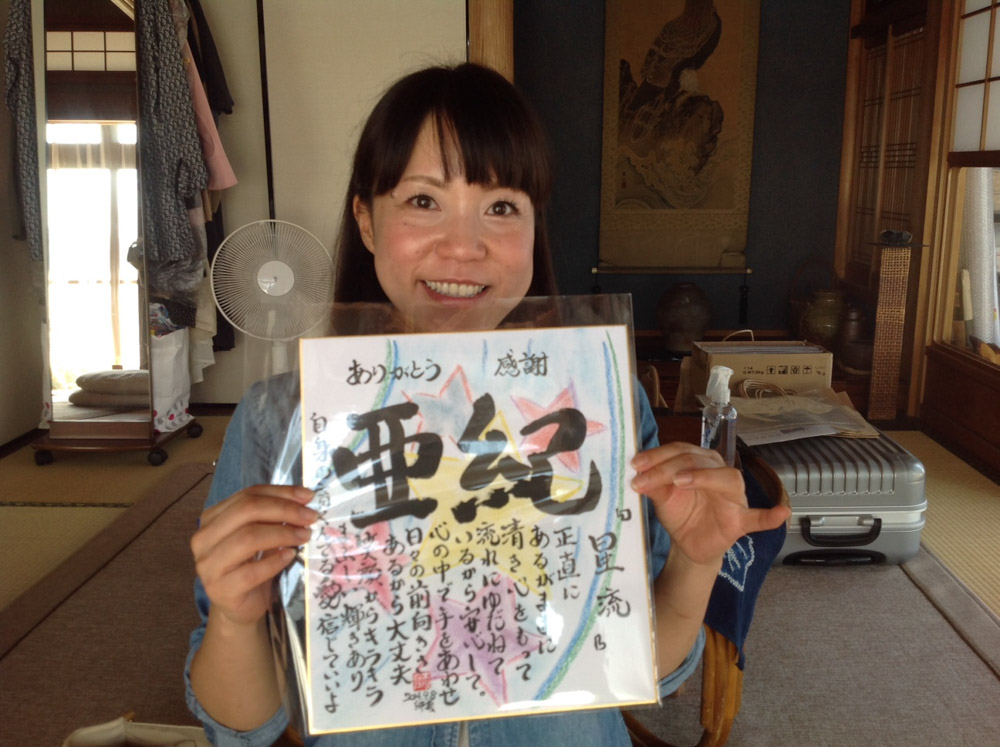 ありがとう 感謝
亜紀
星流
正直に
あるがままに
清き心をもって
流れにゆだねて
いるから安心して。
心の中で手をあわせ
日々の前向きさ
あるから大丈夫
からキラキラ
まぶしい輝きあり
自身の てる愛信じていいよ